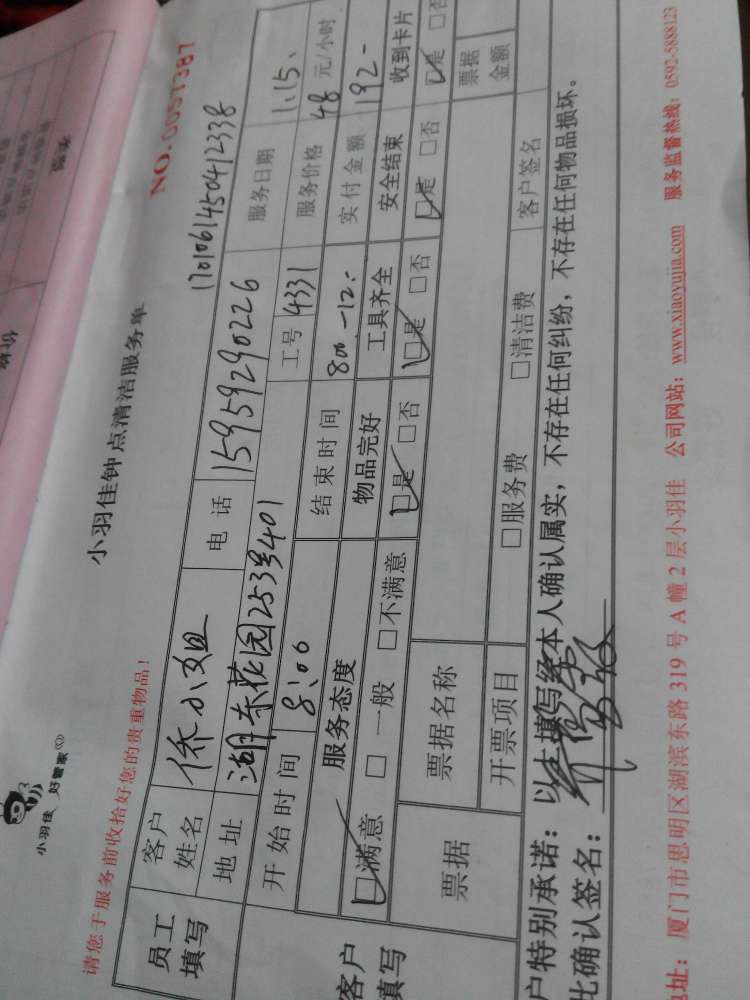 小羽佳 好管家
小羽佳钟点清洁服务单
NO.0057387
请您于服务前收拾好您的贵重物品!
1701061450412338
员工填写
客户姓名 侨小姐 电话 15959290226 服务日期 1.15.
地址 湖东花园253号401 工号 4331 服务价格 48 元/小时
开始时间 8:00 结束时间 800-12: 实付金额 192-
客户填写
服务态度 物品完好 工具齐全 安全结束 收到卡片
☑满意 □一般 □不满意 ☑是 □否 ☑是 □否 ☑是 □否 ☑是 □否
票据 票据名称 票据金额
开票项目 □服务费 □清洁费 客户签名
户特别承诺:以上填写经本人确认属实,不存在任何纠纷,不存在任何物品损坏。
此确认签名:
址:厦门市思明区湖滨东路 319 号 A 幢 2 层小羽佳 公司网站:www.xiaoyujia.com 服务监督热线:0592-5888123